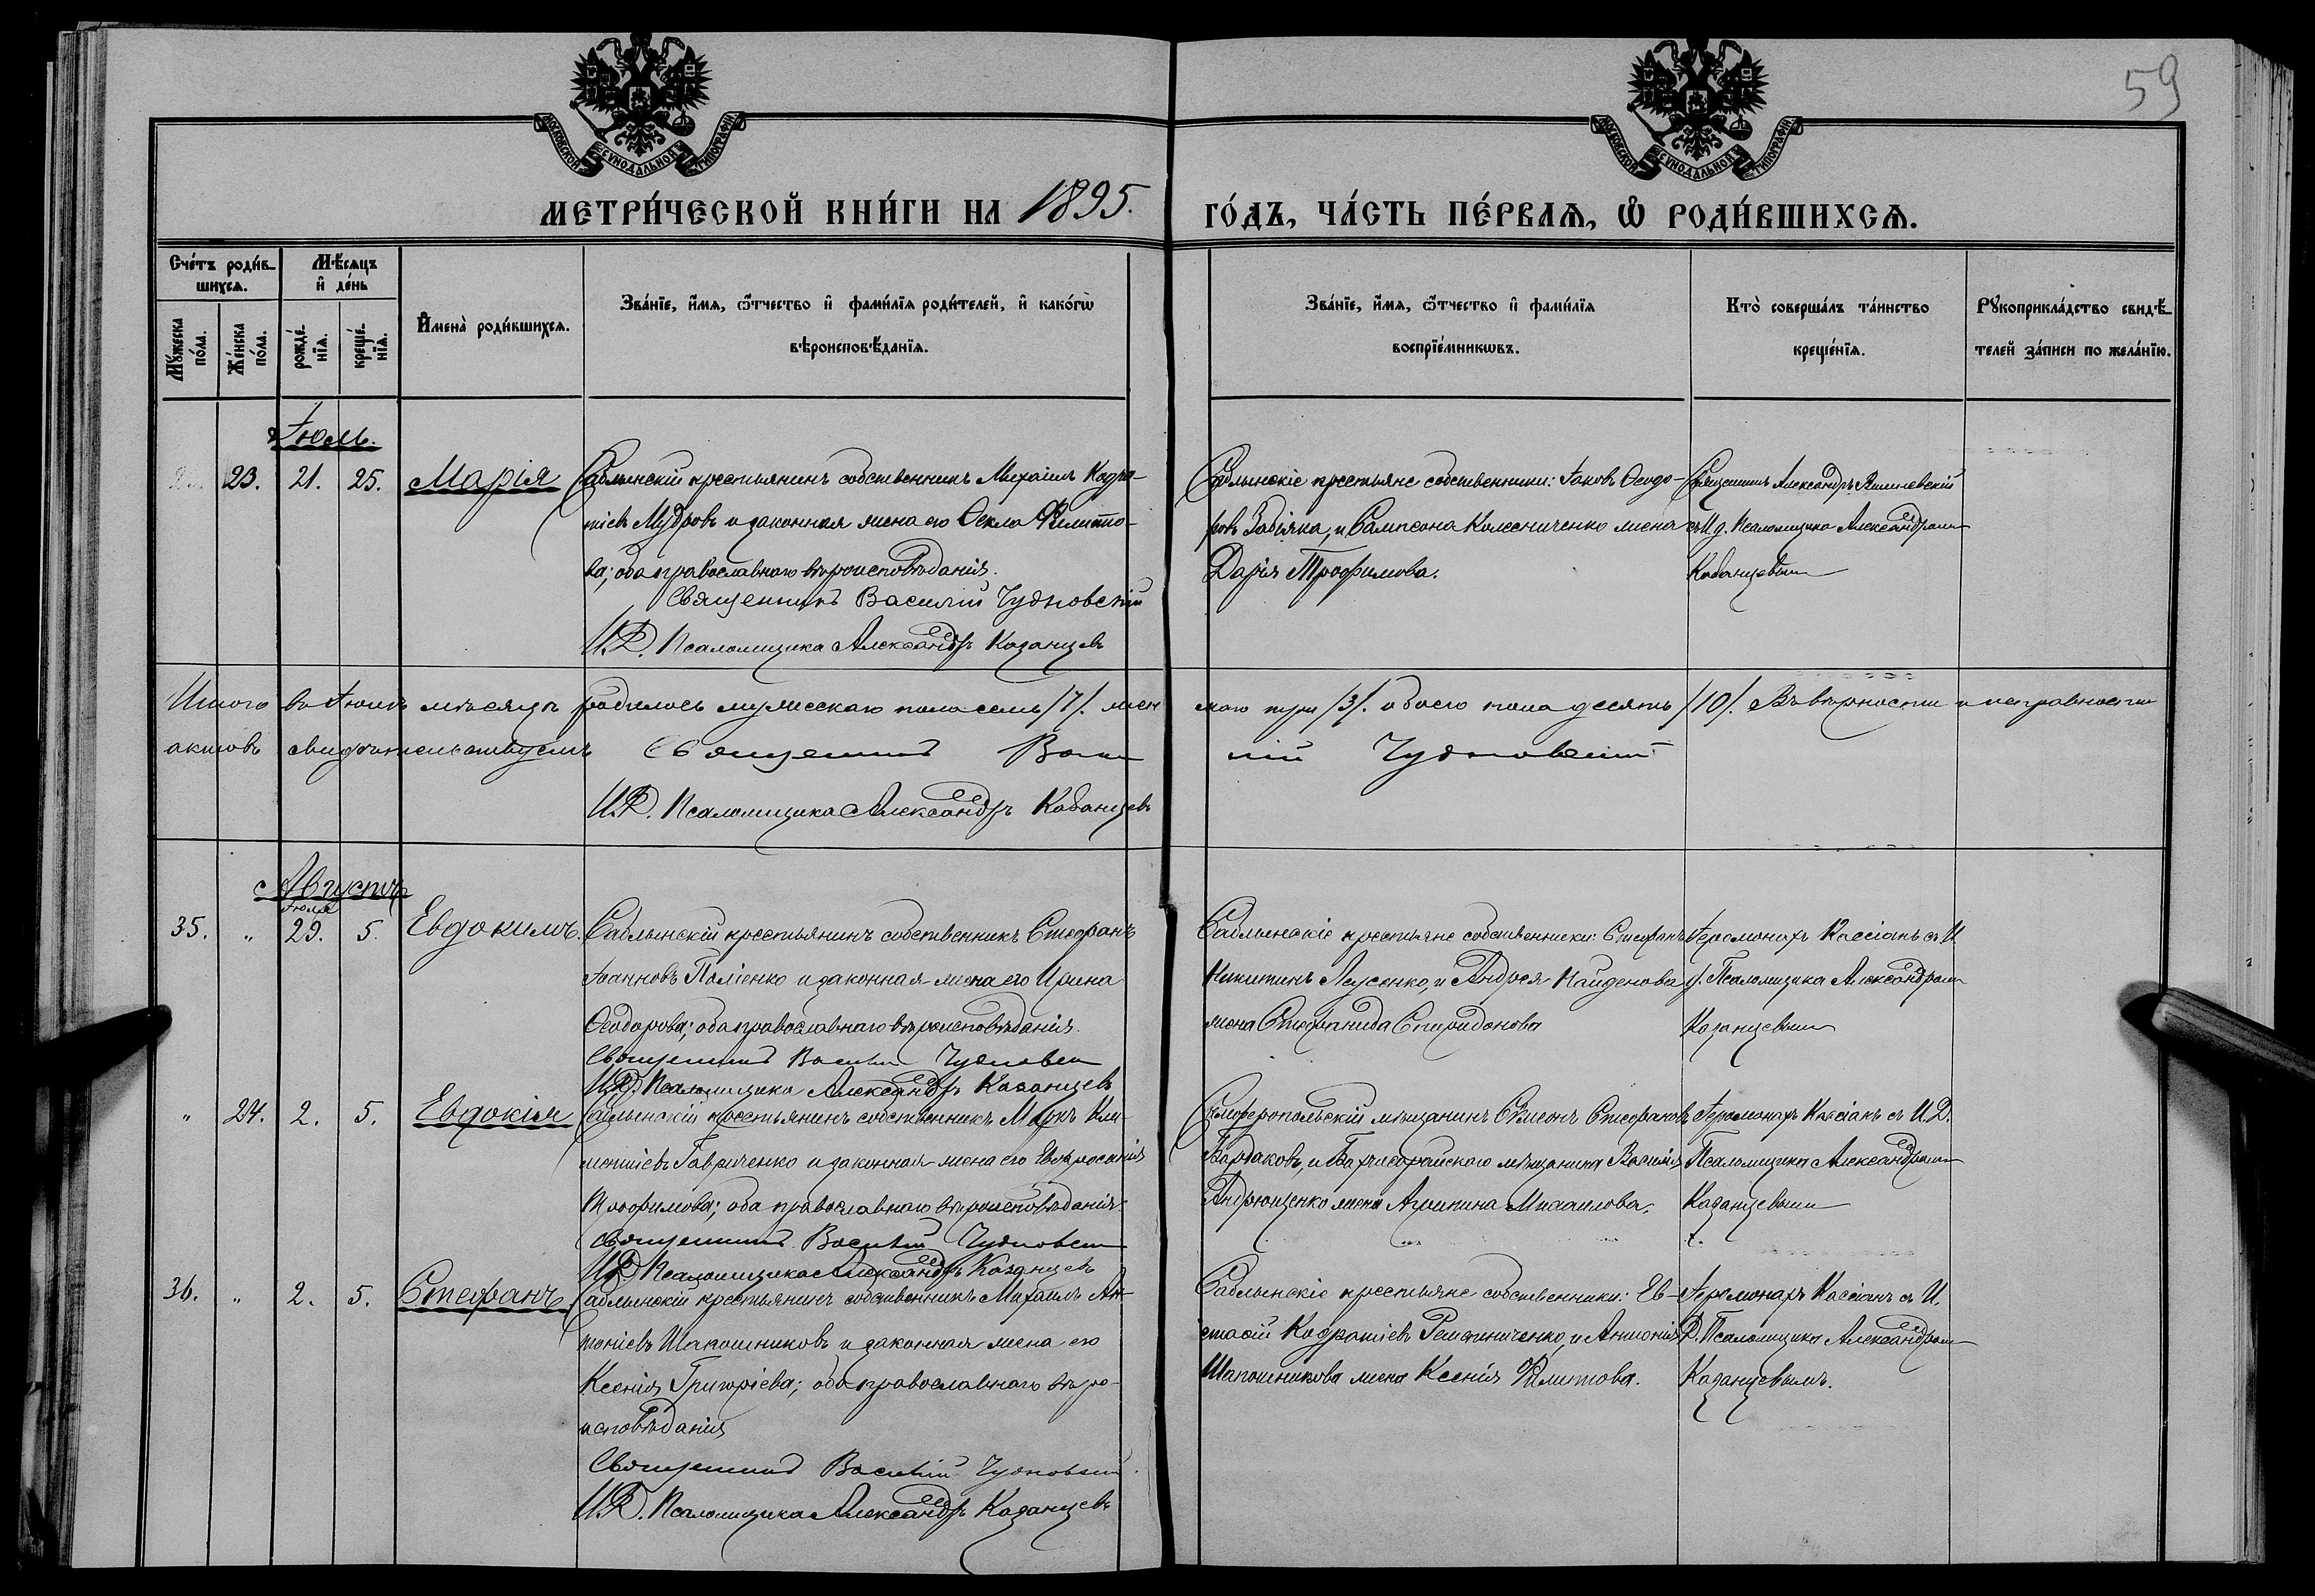 59
МОСКОВСКОЙ СУНОДАЛЬНОЙ ТИПОГРАФІИ
МОСКОВСКОЙ СУНОДАЛЬНОЙ ТИПОГРАФІИ
МЕТРИ́ЧЕСКОЙ КНИ́ГИ НА 1895. ГО́ДЪ, ЧА́СТЬ ПЕ́РВАѦ, Ѡ҆ РОДИ́ВШИХСѦ.
Сче́тъ роди́в-
шихсѧ.
Мѣ́сѧцъ
и҆ де́нь
Мꙋ́жеска
по́ла.
Же́нска
по́ла.
рожде́-
нїѧ.
креще́-
нїѧ.
И҆мена̀ роди́вшихсѧ.
Зва́нїе, и҆́мѧ, ѻ҆́тчество и҆ фами́лїѧ роди́телей, и҆ како́гѡ
вѣроисповѣ́данїѧ.
Зва́нїе, и҆́мѧ, ѻ҆́тчество и҆ фами́лїѧ
воспрїе́мникѡвъ.
Кто̀ соверша́лъ та́инство
креще́нїѧ.
Рꙋкоприкла́дство свидѣ́-
телей за́писи по жела́нїю.
Іюль.
23. 21. 25. Марія Саблынскій крестьянинъ собственникъ Михаилъ Кодра-
тіевъ Мудровъ и законная жена его Ѳекла Филиппо-
ва; оба православнаго вѣроисповѣданія.
Священникъ Василій Чудновскій
И.Д. Псаломщика Александръ Казанцевъ
Саблынскіе крестьяне собственники: Іаковъ Ѳеодо-
ровъ Забіяка, и Сампсона Колесниченко жена
Дарія Трофимова.
Священникъ Александръ
съ И. д. Псаломщика Александромъ
Казанцевымъ
Итого въ Іюлѣ мѣсяцѣ родилось мужескаго пола семь /7/. жен скаго три /3/. обоего пола десять /10/. Въ вѣрности и исправности
актовъ свидѣтельствуемъ Священникъ Васи лій Чудновскій
И.Д. Псаломщика Александръ Казанцевъ
Августъ
Іюля
35. " 29. 5. Евдокимъ. Саблынскій крестьянинъ собственникъ Стефанъ
Іоанновъ Паліенко и законная жена его Ирина
Ѳеодорова; оба православнаго вѣроисповѣданія.
Священникъ Василій Чудновскій
И.Д. Псаломщика Александръ Казанцевъ
Саблынскіе крестьяне собственники: Стефанъ
Никитинъ Лусенко, и Андрея Найденова
жена Стефанида Спиридонова
Іеромонахъ Кассіанъ съ И.
д. Псаломщика Александромъ
Казанцевымъ
" 24. 2. 5. Евдокія Саблынскій крестьянинъ собственникъ Маркъ Кли-
ментіевъ Гавриченко и законная жена его Евфросинія
Трофимова; оба православнаго вѣроисповѣданія
Священникъ Василій Чудновскій
И.Д. Псаломщика Александръ Казанцевъ
Симферопольскій мѣщанинъ Сѵмеонъ Стефановъ
Бардаковъ, и Бахчисарайскаго мѣщанина Василія
Андрющенко жена Агрипина Михаилова.
Іеромонахъ Кассіанъ съ И.Д.
Псаломщика Александромъ
Казанцевымъ
36. " 2. 5. Стефанъ. Саблынскій крестьянинъ собственникъ Михаилъ Ан-
тоніевъ Шапошниковъ и законная жена его
Ксенія Григоріева; оба православнаго вѣро-
исповѣданія
Священникъ Василій Чудновскій.
И.Д. Псаломщика Александръ Казанцевъ
Саблынскіе крестьяне собственники: Ев-
стафій Кодратіевъ и Антонія
Шапошникова жена Ксенія Филиппова.
Іеромонахъ Кассіанъ съ И.
Д. Псаломщика Александромъ
Казанцевымъ.